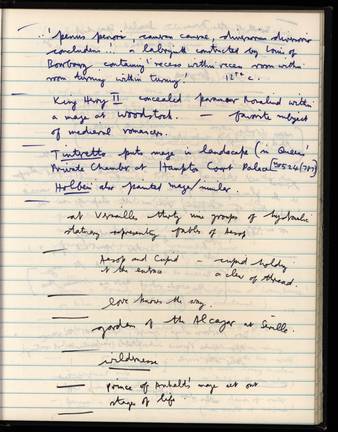 'penus penor, camera camre, diversum diversoria
concludens'. a labyrinth constructed by Louis of
Bourbourg containing 'recess within recess room within
room turning within turning.' 12th c.
King Henry II concealed paramour Rosalind within
a maze at Woodstock. — favorite subject
of medieval romancers.
Tintoretto puts maze in landscape (in Queen's
Private Chamber at Hampton Court Palace)
Holbein also painted mazes
at Versailles thirty nine groups of hydraulic
statuary representing fables of Aesop
Aesop and Cupid — cupid holding
at the entrance a clew of thread.
love knows the way.
garden of the Alcazar at Seville.
wilderness
prince of Anhalt's maze set out
stages of life.